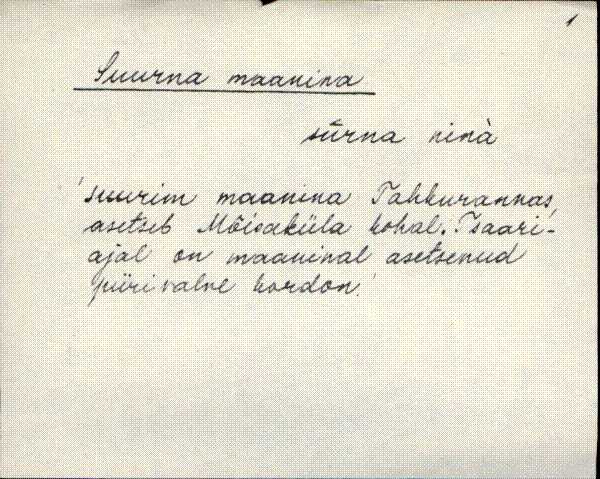 1
Suurna maanina
sūrna ninà
'suurim maanina Tahkurannas,
asetseb Mõisaküla kohal. Tsaari-
ajal on maaninal asetsenud
piirivalve kordon.'